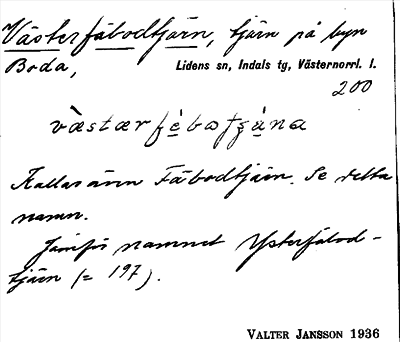 Västerfäbodtjärn, tjärn på byn
Boda,
Lidens sn, Indals tg, Västernorrl. l.
200
Kallas även Fäbodtjärn. Se detta
namn.
Jämför namnet Ysterfäbod-
tjärn (= 197).
VALTER JANSSON 1936